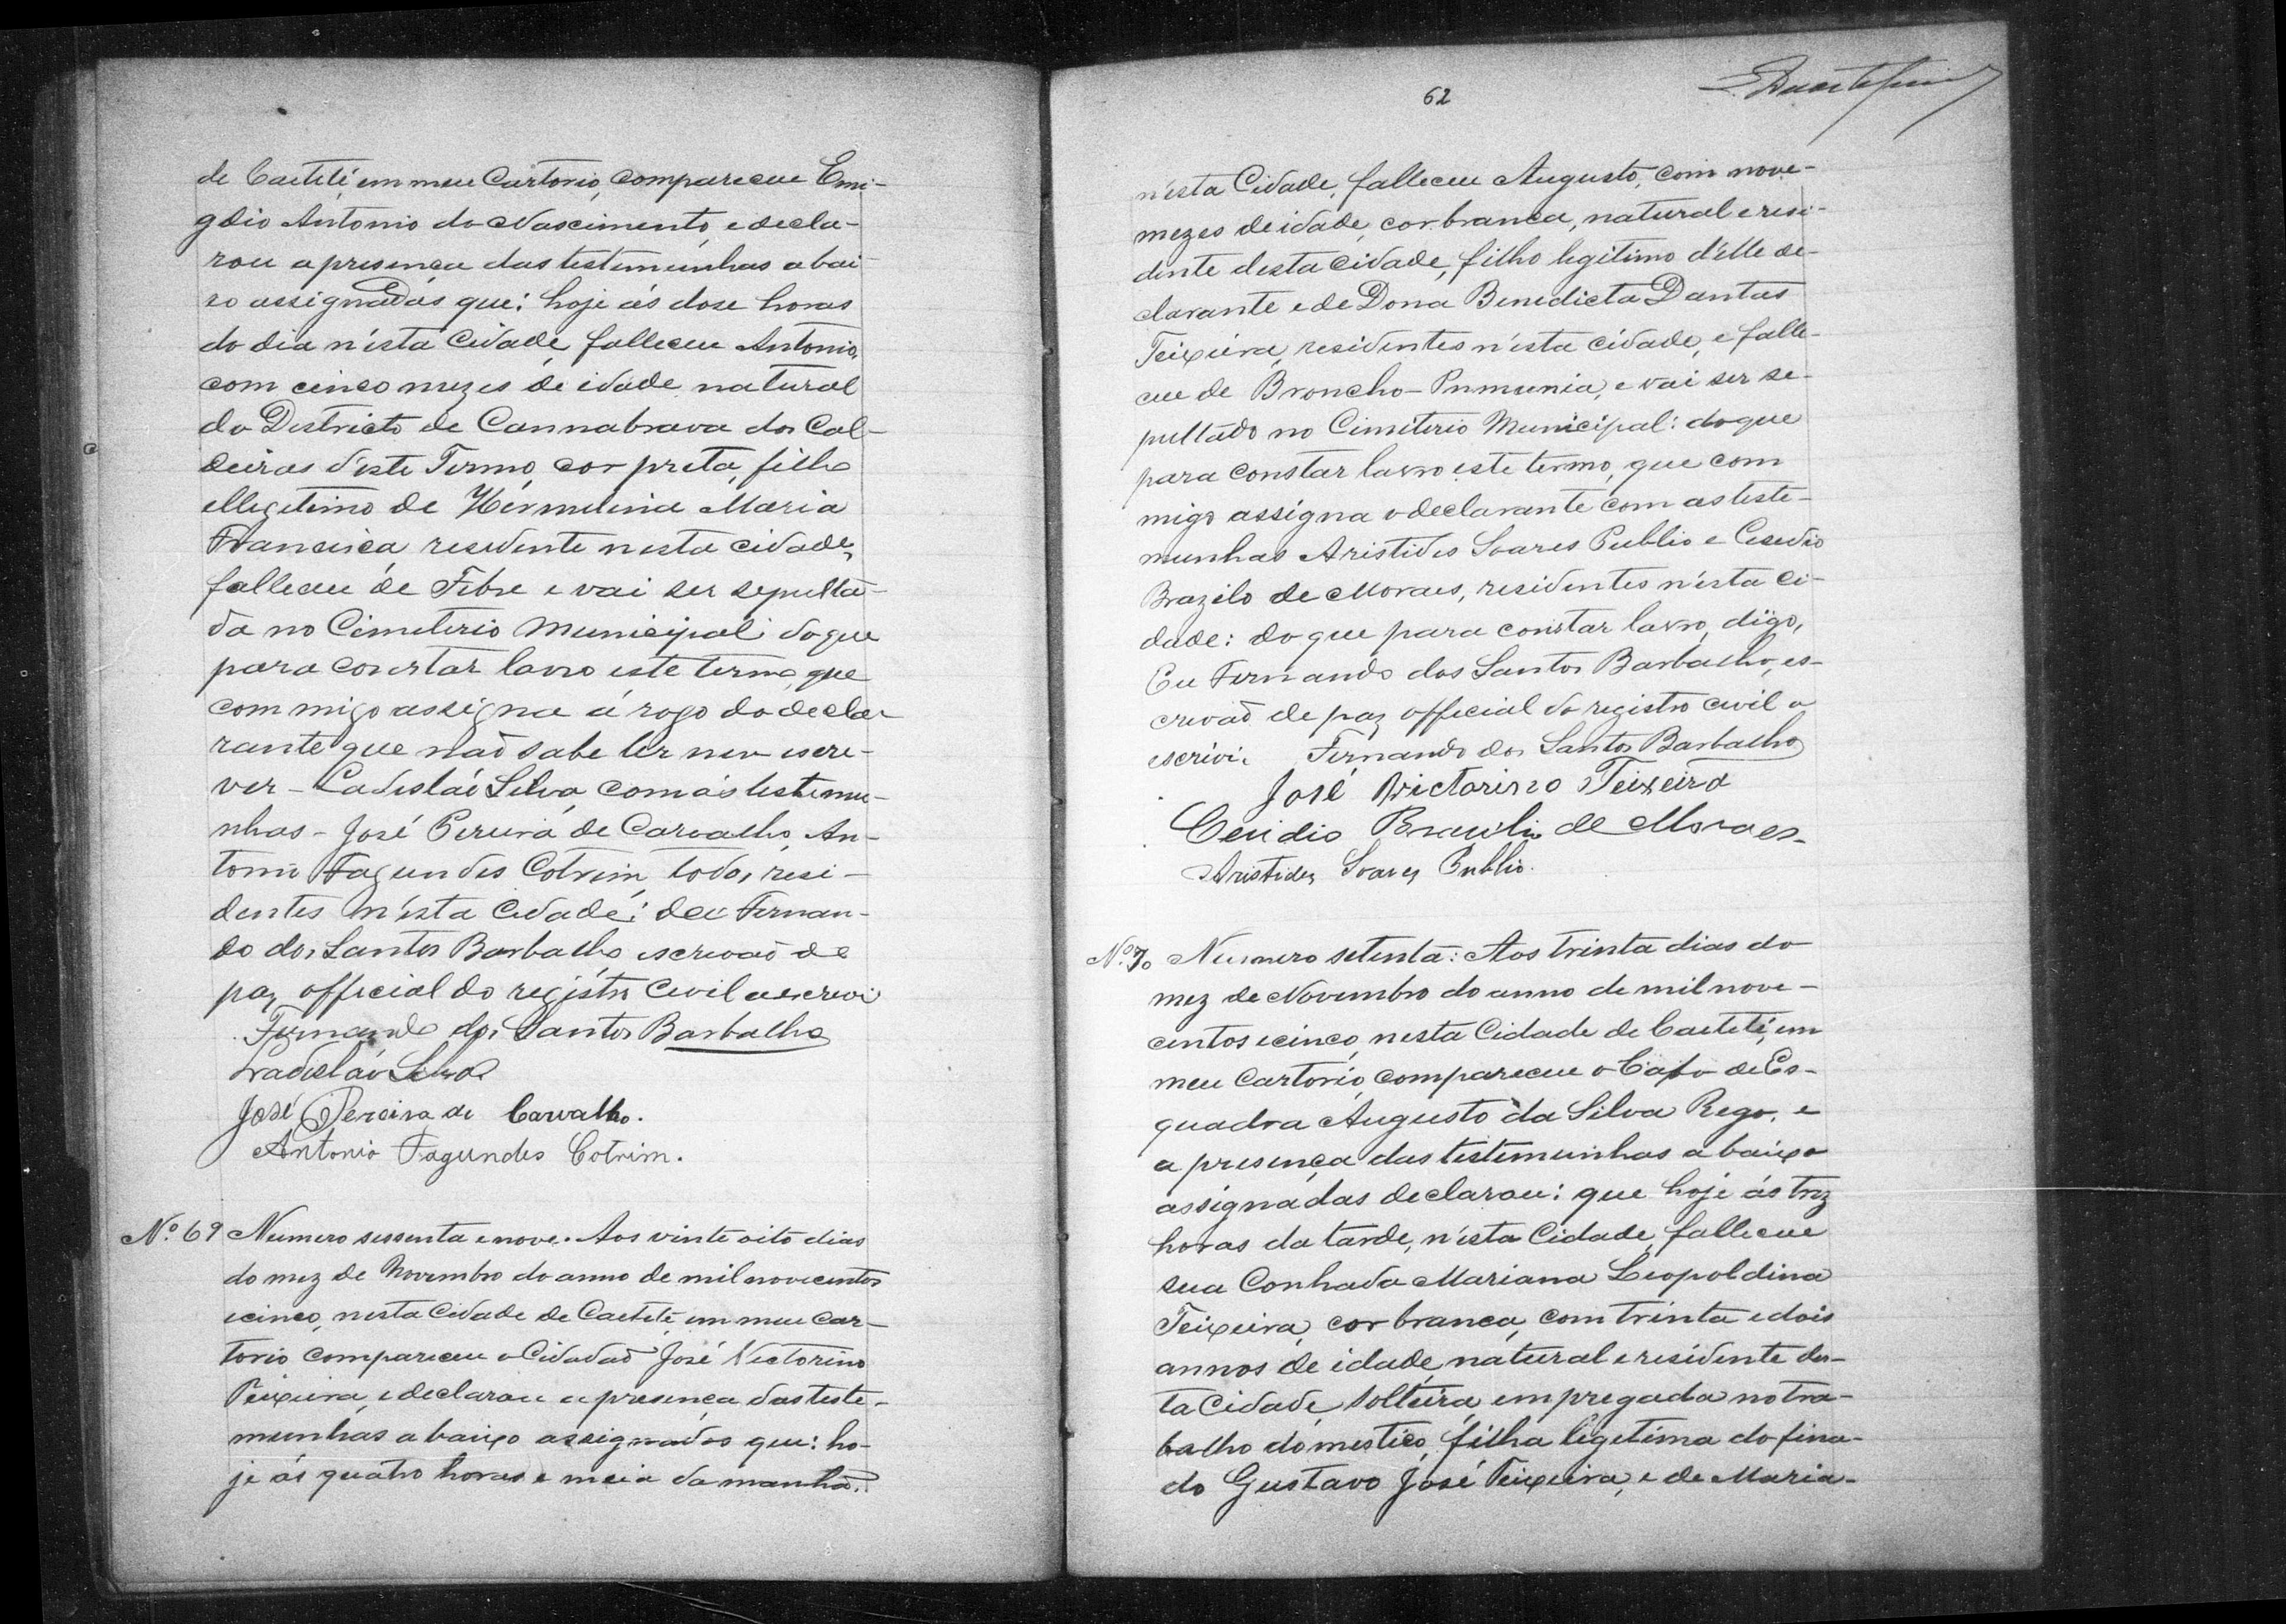 de Caetité em meu Cartorio, compareceu Emi-
gdio Antonio do Nascimento, e decla-
rou a presença das testemunhas abai-
xo assignadas que: hoje ás dose horas
do dia n'ésta Cidade, falleceu Antonio,
com cinco mezes de idade natural
do Districto de Cannabrava dos Cal-
deiras d'este Termo, cor preta, filho
ellegetimo de Hérmelina Maria
Francisca, residente nesta cidade,
falleceu de Febre e vai ser sepulta-
do no Cimeterio Municipal: do que
para constar lavro este termo, que
commigo assigna á rogo do decla-
rante que naõ sabe ler nem escre-
ver - Ladisláo Silva, com as testemu-
nhas - José Pereira de Carvalho, An-
tonio Fagundes Cotrim, todos resi-
dentes n'ésta Cidade: Eu Fernan-
do dos Santos Barbalho escrivaõ de
paz official do registro Civil o escrevi
Fernando dos Santos Barbalho
Ladisláo Silva
José Pereira de Carvalho.
Antonio Fagundes Cotrim.
Nº. 69 Numero sessenta e nove. Aos vinte oito dias
do mez de Novembro do anno de mil novecentos
e cinco, nesta Cidade de Caetité em meu Car-
torio compareceu o Cidadaõ José Victorino
Teixeira, e declarou a presença das teste-
munhas abaixo assignadas que: ho-
je ás quatro horas e meia da manhã,
62
n'ésta Cidade, falleceu Augusto, com nove-
mezes de idade, cor branca, natural e resi-
dente desta cidade, filho legitimo d'élle de-
clarante e de Dona Benedicta Dantas
Teixeira, residentes n'ésta cidade, e falle-
ceu de Broncho-Pnmunia, e vai ser se-
pultado no Cimiterio Municipal: do que
para constar lavro este termo, que com
migo assigna o declarante com as teste-
munhas Aristides Soares Publio e Cesidio
Brazilo de Moraes, residentes n'ésta Ci-
dade: do que para constar lavro, digo,
Eu Fernando dos Santos Barbalho, es-
crivaõ de paz official do registro civil o
escrivi. Fernando dos Santos Barbalho
José Victorino Teixeira
Cesidio Brazilio de Moraes
Aristides Soares Publio.
Nº. 70 Numero setenta: Aos trinta dias do
mez de Novembro do anno de mil nove-
centos e cinco, nesta Cidade de Caetité, em
meu Cartorio, compareceu o Cabo de Es-
quadra Augusto da Silva Rego, e
a presença das testemunhas abaixo
assignadas declarou: que hoje ás trez
horas da tarde, n'ésta Cidade, falleceu
sua Conhada Mariana Leopoldina
Teixeira, cor branca, com trinta e dois
annos de idade, natural e residente des-
ta Cidade, solteira, empregada no tra-
balho domestico, filha legetima do fina-
do Gustavo José Teixeira, e de Maria-